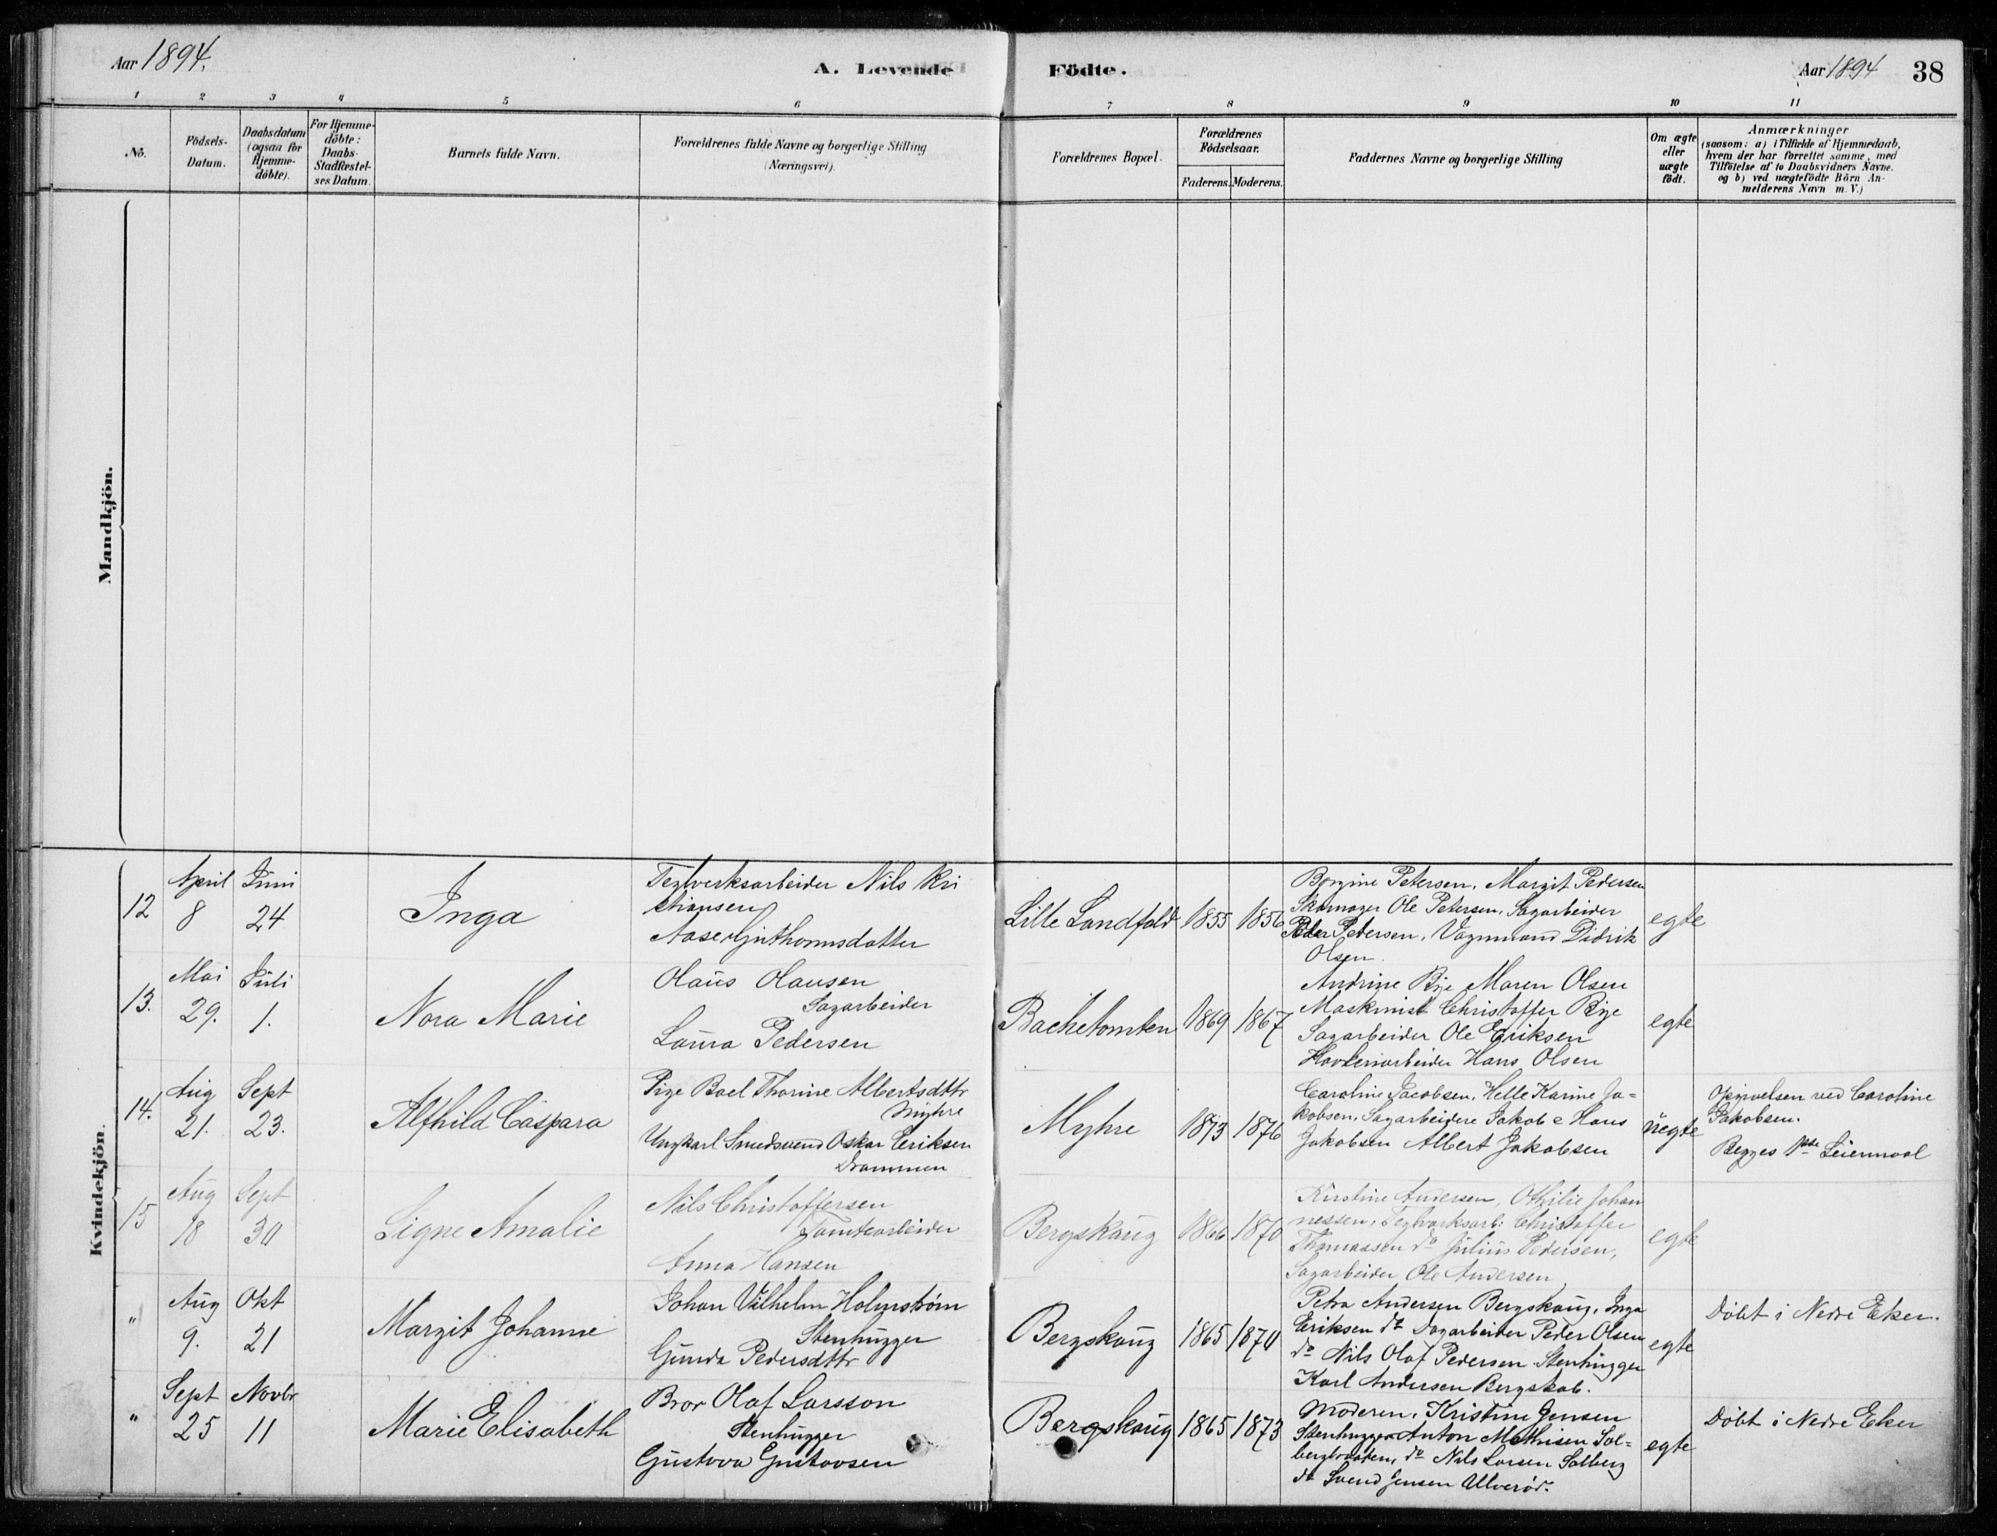 Aar 1894.
A. Levende Födte.
Aar 1894
38
1 2 3 4 5 6 7 8 9 10 11
No.
Födsels-
Datum.
Daabsdatum
(ogsaa for
Hjemme-
döbte).
For Hjemme-
döbte:
Daabs-
Stadfæstel-
ses Datum.
Barnets fulde Navn.
Forældrenes fulde Navne og borgerlige Stilling
(Næringsvei).
Forældrenes Bopæl.
Forældrenes
Födselsaar.
Faderens. Moderens.
Faddernes Navne og borgerlige Stilling
Om ægte
eller
uægte
født.
Anmærkninger
(saasom: a) i Tilfælde af Hjemmedaab,
hvem der har forrettet samme, med
Tilföielse af to Daabsvidners Navne.
og b) ved uægtefödte Börn An-
melderens Navn m. V.)
Mandkjön.
Kvindekjön.
12
April
8
Juni
24
Inga
Teglverksarbeider Nils Kri
stiansen
Aase Guthormsdatter
Lille Landfald
1855
1856
Borgine Petersen, Margit Pedersen
Skomager Ole Petersen, Sagarbeider
Peder Petersen, Vognmand Didrik
Olsen.
egte
13.
Mai
29.
Juli
1.
Nora Marie
Olaus Olausen
Sagarbeider
Laura Pedersen
Bachetomten
1869
1867
Andrine Bye Maren Olsen
Maskinist Christoffer Bye
Sagarbeider Ole Eriksen
Høvleriarbeider Hans Olsen
egte
14.
Aug
21.
Sept
23.
Alfhild Caspara
Pige Bael Thorine Albertsdttr
Myhre
Ungkarl Smedsvend Oskar Eriksen
Drammen
Myhre
1873
1876
Caroline Jacobsen, Helle Karine Ja-
kobsen, Sagarbeidere Jakob & Hans
Jakobsen Albert Jakobsen
uegte
Opgivelsen ved Caroline
Jakobsen.
Begges 1ste Leiermaal
15
Aug
18
Sept
30
Signe Amalie
Nils Christoffersen
Tomtearbeider
Anna Hansen
Bergskaug
1866
1870
Kirstine Andersen, Othilie Johan
nessen, Teglverksarb. Christoffer
Thomassen do Julius Pedersen,
Sagarbeider Ole Andersen
egte
"
Aug
9.
Okt
21
Margit Johanne
Johan Vilhelm Holmstrøm
Stenhugger
Gunda Pedersdttr
Bergskaug
1865
1870
Petra Andersen Bergskaug, Inga
Eriksen do Dagarbeider Peder Olsen
do Nils Olaf Pedersen Stenhugger
Karl Andersen Bergskab.
egte
Døbt i Nedre Eker.
"
Sept
25
Novbr
11
Marie Elisabeth
Bror Olaf Larsson
Stenhugger
Gustava Gustavsen
Bergskaug
1865
1873
Moderen, Kristine Jensen
Stenhugger Anton Mathisen Sol-
do Nils Larsen Solberg
do Svend Jensen Ulverød.
egte
Døbt i Nedre Eker